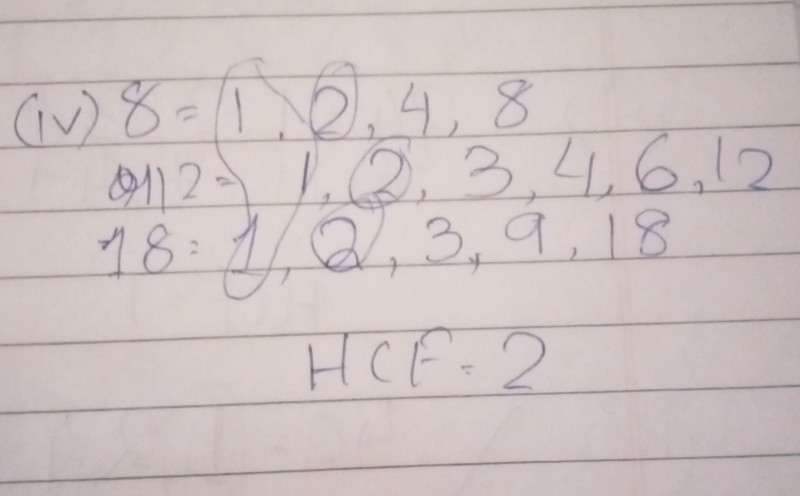 (iv) 8 = 1, 2, 4, 8
12 = 1, 2, 3, 4, 6, 12
18 = 1, 2, 3, 9, 18
HCF = 2